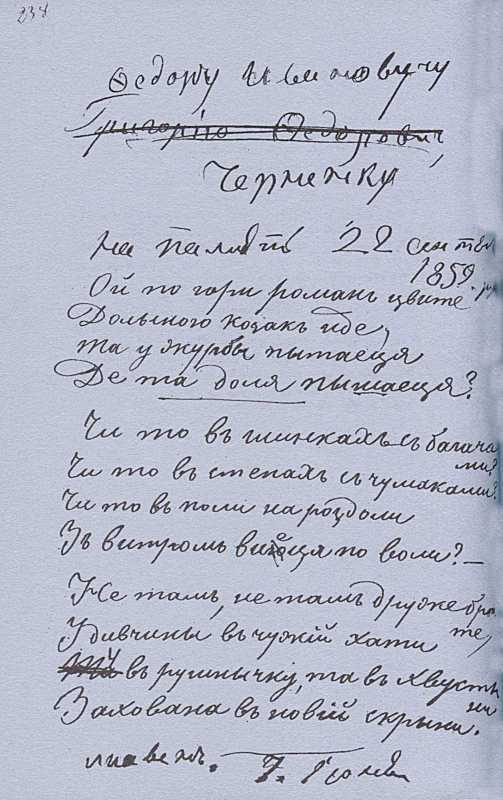 Ѳедору Ивановучу
Григорію Ѳедорович,
Черненку
на память 22 сентяб
1859.
Ой по гори романъ цвите
Долыною козакъ иде,
та у журбы пытаеця
Де та доля пышаеця?
Чи то въ шинкахъ съ багача
ми?
Чи то въ степахъ съ чумаками?
Чи то въ поли на роздоли
Зъ витромъ виёця по воли? —
Не тамъ, не тамъ друже бра
те,
У дивчины въ чужій хати
въ рушнычку, та въ хвусты
ни
Захована въ новій скрыни.
7. Іюня